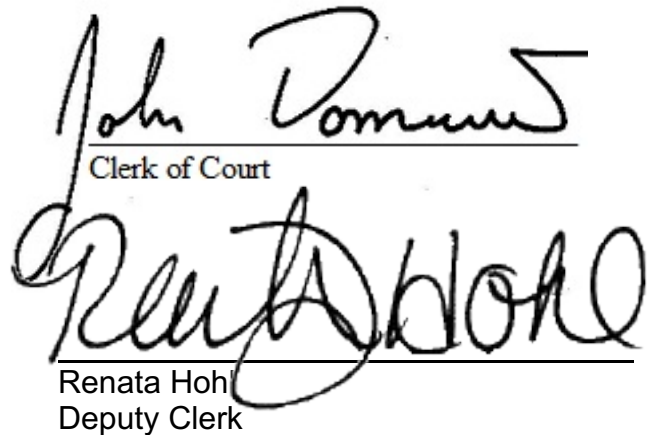 John
Clerk of Court
Renata Hohl
Renata Hohl
Deputy Clerk